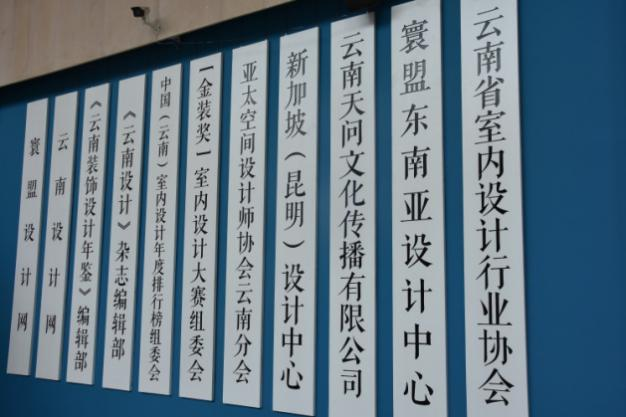 云南省室内设计行业协会
寰盟东南亚设计中心
云南天问文化传播有限公司
新加坡（昆明）设计中心
亚太空间设计师协会云南分会
一金装奖一室内设计大赛组委会
中国（云南）室内设计年度排行榜组委会
《云南设计》杂志编辑部
《云南装饰设计年鉴》编辑部
云南设计网
寰盟设计网